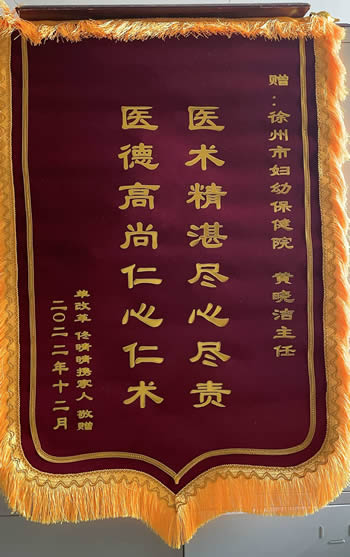 赠：徐州市妇幼保健院 黄晓洁主任
医术精湛尽心尽责
医德高尚仁心仁术
单改革 佟晴晴携家人 敬赠
二〇二二年十二月